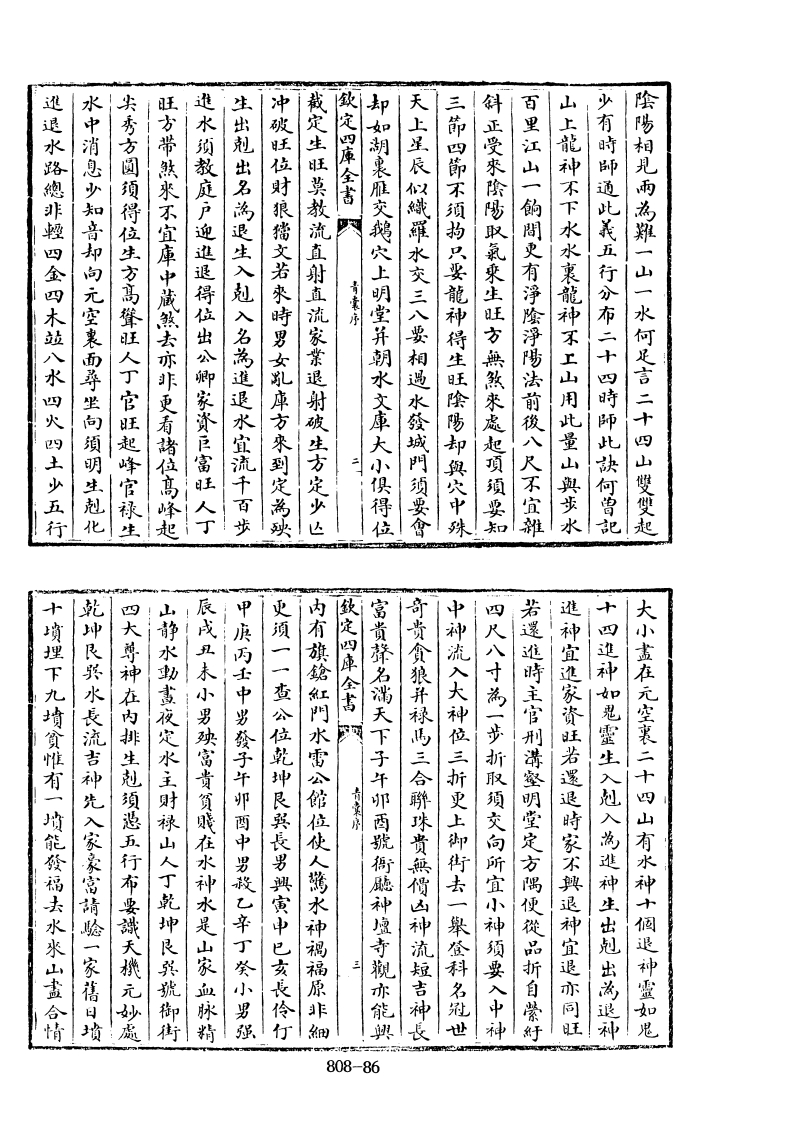 陰陽相見兩為難一山一水何足言二十四山雙雙起
少有時師通此義五行分布二十四時師此訣何曽記
山上龍神不下水水裏龍神不上山用此量山與步水
百里江山一餉間更有淨陰淨陽法前後八尺不宜雜
斜正受來陰陽取氣乘生旺方無煞來處起頂須要知
三節四節不須拘只要龍神得生旺陰陽却與穴中殊
天上星辰似織羅水交三八要相過水發城門須要㑹
却如湖裏雁交鵝穴上明堂并朝水文庫大小俱得位
欽定四庫全書
青囊序
二
截定生旺莫教流直射直流家業退射破生方定少亡
冲破旺位財狼㩜文若來時男女亂庫方來到定為殃
生出剋出名為退生入剋入名為進退水宜流千百步
進水須教庭户迎進退得位出公卿家資巨富旺人丁
旺方帶煞來不宜庫中藏煞去亦非更看諸位髙峰起
尖秀方圓須得位生方髙聳旺人丁官旺起峰官禄生
水中消息少知音却向元空裏面尋坐向須明生剋化
進退水路總非輕四金四木竝八水四火四土少五行
大小盡在元空裏二十四山有水神十個退神靈如鬼
十四進神如鬼靈生入剋入為進神生出剋出為退神
進神宜進家資旺若還退時家不興退神宜退亦同旺
若還進時主官刑溝壑明堂定方隅便從品折自縈紆
四尺八寸為一步折取須交向所宜小神須要入中神
中神流入大神位三折更上御街去一舉登科名冠世
竒貴貪狼并禄馬三合聯珠貴無價凶神流短吉神長
富貴聲名滿天下子午卯酉號衙廳神壇寺觀亦能興
欽定四庫全書
青囊序
三
内有旗鎗紅門水雷公館位使人驚水神禍福原非細
更須一一查公位乾坤艮巽長男興寅申巳亥長伶仃
甲庚丙壬中男發子午卯酉中男殺乙辛丁癸小男强
辰戌丑未小男殃富貴貧賤在水神水是山家血脉精
山静水動晝夜定水主財禄山人丁乾坤艮巽號御街
四大尊神在内排生剋須憑五行布要識天機元妙處
乾坤艮巽水長流吉神先入家豪富請驗一家舊日墳
十墳埋下九墳貧惟有一墳能發福去水來山盡合情
808-86